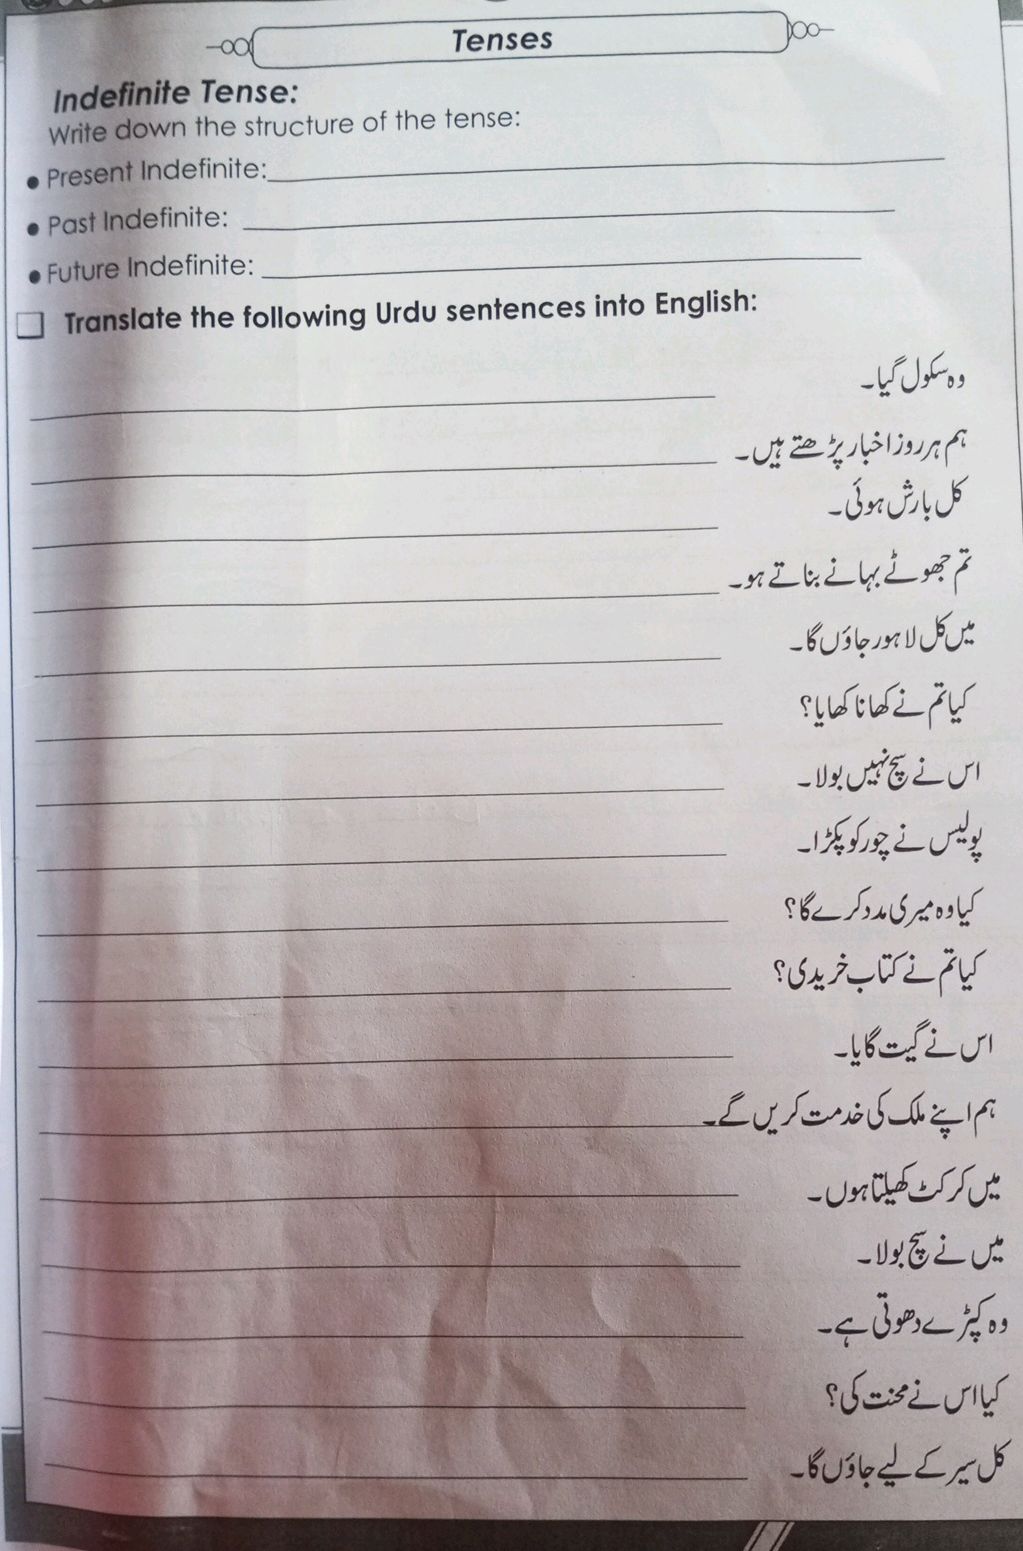 Tenses
Indefinite Tense:
Write down the structure of the tense:
• Present Indefinite:
• Past Indefinite:
• Future Indefinite:
Translate the following Urdu sentences into English:
وہ سکول گیا۔
ہم ہر روز اخبار پڑھتے ہیں۔
کل بارش ہوئی۔
تم جھوٹے بہانے بناتے ہو۔
میں کل لاہور جاؤں گا۔
کیا تم نے کھانا کھایا؟
اس نے سچ نہیں بولا۔
پولیس نے چور کو پکڑا۔
کیا وہ میری مدد کرے گا؟
کیا تم نے کتاب خریدی؟
اس نے گیت گایا۔
ہم اپنے ملک کی خدمت کریں گے۔
میں کرکٹ کھیلتا ہوں۔
میں نے سچ بولا۔
وہ کپڑے دھوتی ہے۔
کیا اس نے محنت کی؟
کل سیر کے لیے جاؤں گا۔